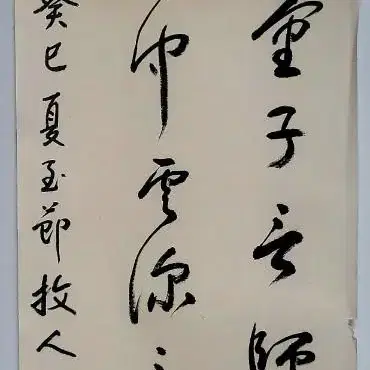 童子言師
中雲深
癸巳夏至節牧人